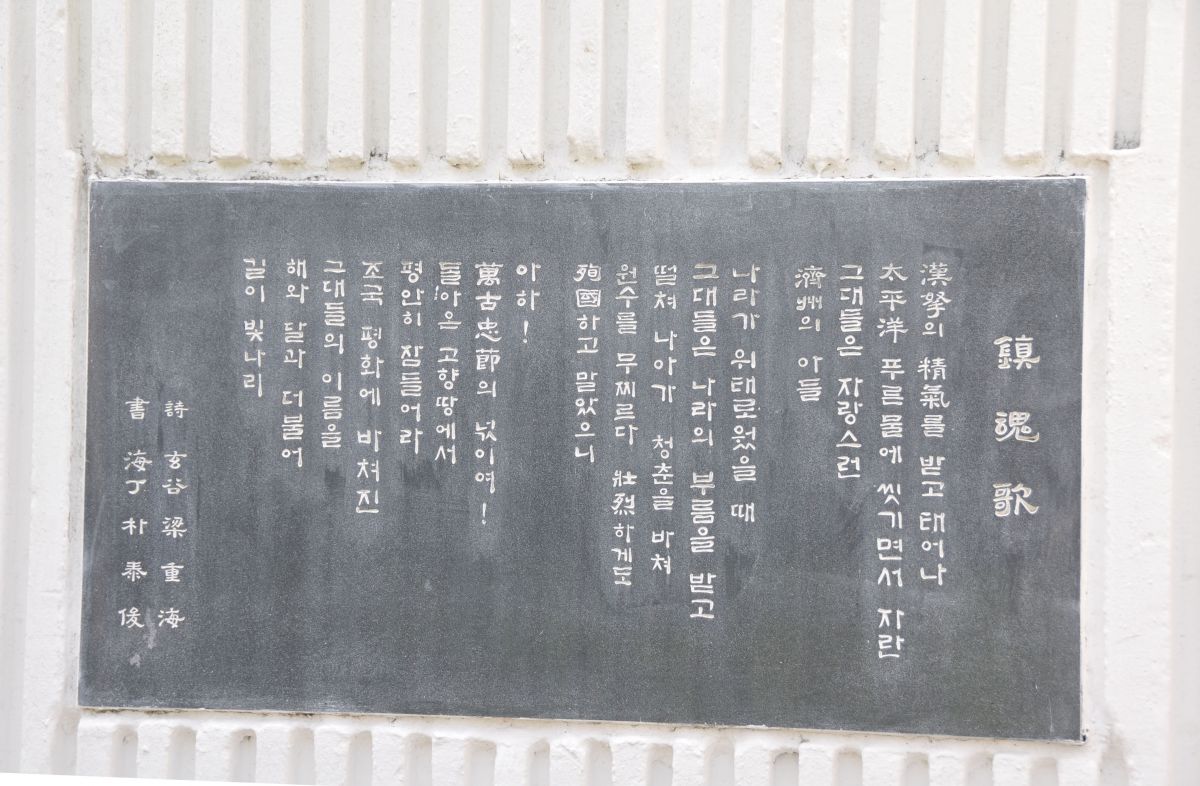 鎭魂歌
漢拏의 精氣를 받고 태어나
太平洋 푸른물에 씻기면서 자란
그대들은 자랑스런
濟州의 아들
나라가 위태로웠을 때
그대들은 나라의 부름을 받고
떨쳐 나아가 청춘을 바쳐
원수를 무찌르다 壯烈하게도
殉國하고 말았으니
아하!
萬古忠節의 넋이여!
돌아온 고향땅에서
평안히 잠들어라
조국 평화에 바쳐진
그대들의 이름을
해와 달과 더불어
길이 빛나리
詩 玄谷 梁重海
書 海丁 朴泰俊